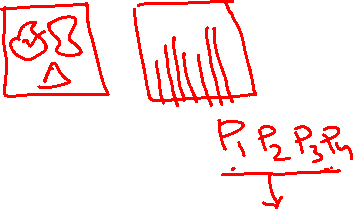 P1 P2 P3 P4